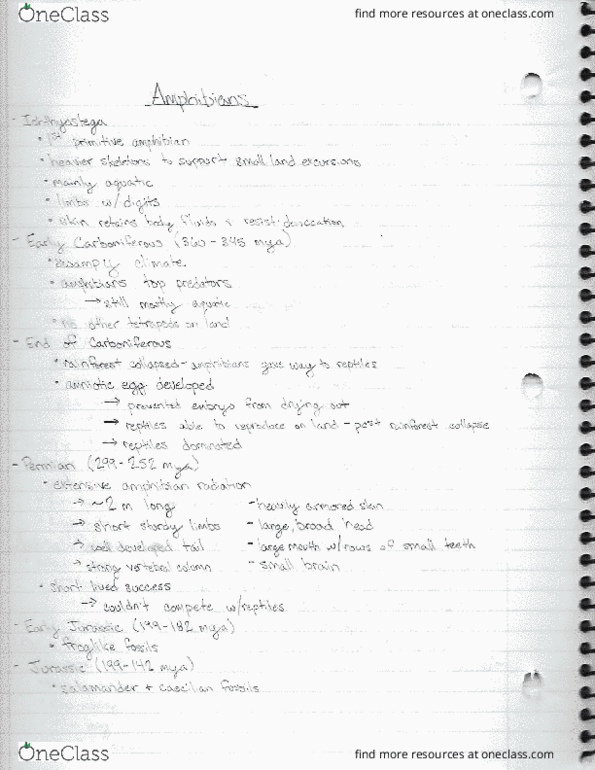 OneClass
find more resources at oneclass.com
Amphibians
- Ichthyostega
• 1st primitive amphibian
• heavier skeletons to support small land excursions
• mainly aquatic
• limbs w/ digits
• skin retains body fluids + resist desiccation
- Early Carboniferous (360-345 mya)
• swampy climate.
• amphibians top predators
→ still mostly aquatic
• no other tetrapods on land
- End of Carboniferous
• rainforest collapsed - amphibians give way to reptiles
• amniotic egg developed
→ prevented embryo from drying out
→ reptiles able to reproduce on land - post rainforest collapse
→ reptiles dominated
- Permian (299-252 mya)
• extensive amphibian radiation
→ ~2 m long - heavily armored skin
→ short sturdy limbs - large, broad head
→ well developed tail - large mouth w/ rows of small teeth
→ strong vertebral column - small brain
• short lived success
→ couldn't compete w/ reptiles
- Early Jurassic (199-182 mya)
• froglike fossils
- Jurassic (199-142 mya)
• salamander + caecilan fossils
OneClass
find more resources at oneclass.com